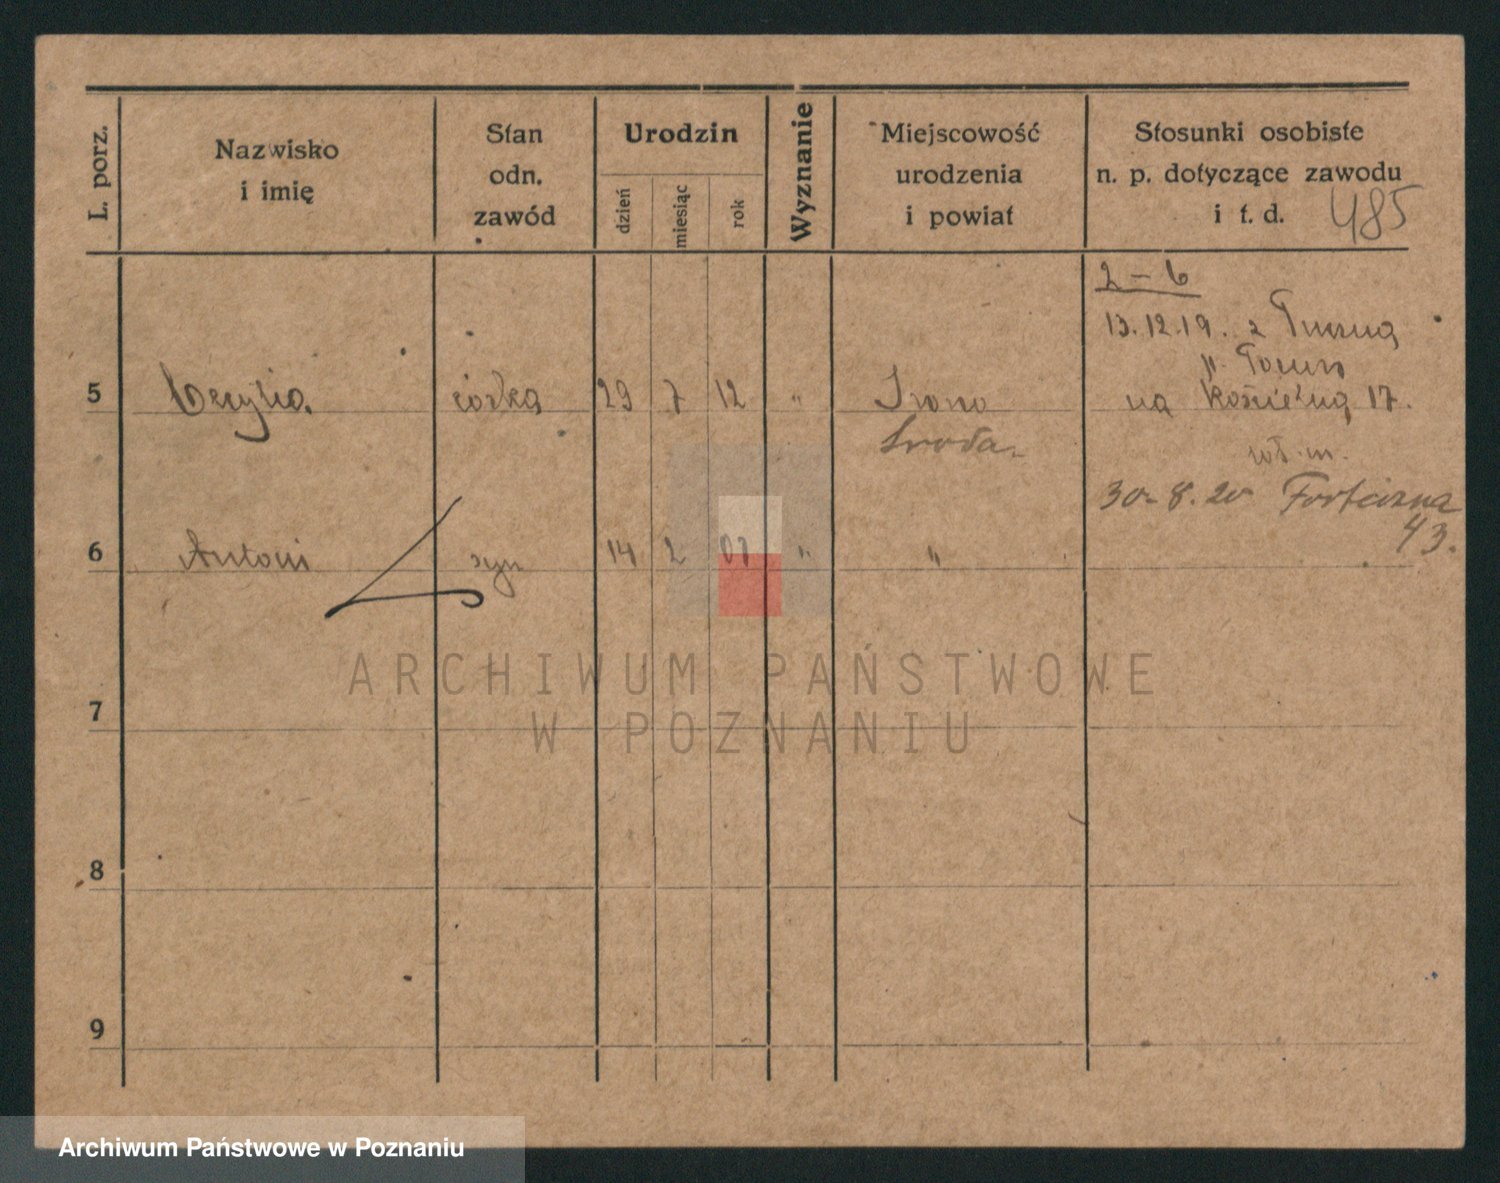 L. porz.
Nazwisko
i imię
Stan
odn.
zawód
Urodzin
dzień
miesiąc
rok
Wyznanie
Miejscowość
urodzenia
i powiat
Stosunki osobiste
n. p. dotyczące zawodu
i t. d. 485
2 – 6
13.12.19. z
5 Cecylia. córka 29 7 12 "
na 17.
Środa
30. 8. 20 Forteczna
43.
6 Antoni syn 14 2 07 " "
7
8
9
ARCHIWUM PAŃSTWOWE
W POZNANIU
Archiwum Państwowe w Poznaniu